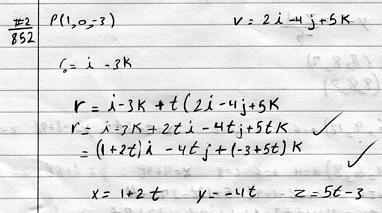 #2 P(1,0,-3) v = 2i -4j+5k
852
r₀ = i - 3k
r = i-3k + t(2i-4j+5k
r = i-3k+2ti - 4tj+5tk ✓
= (1+2t)i - 4tj+(-3+5t)k ✓
x = 1+2t y = -4t z = 5t-3